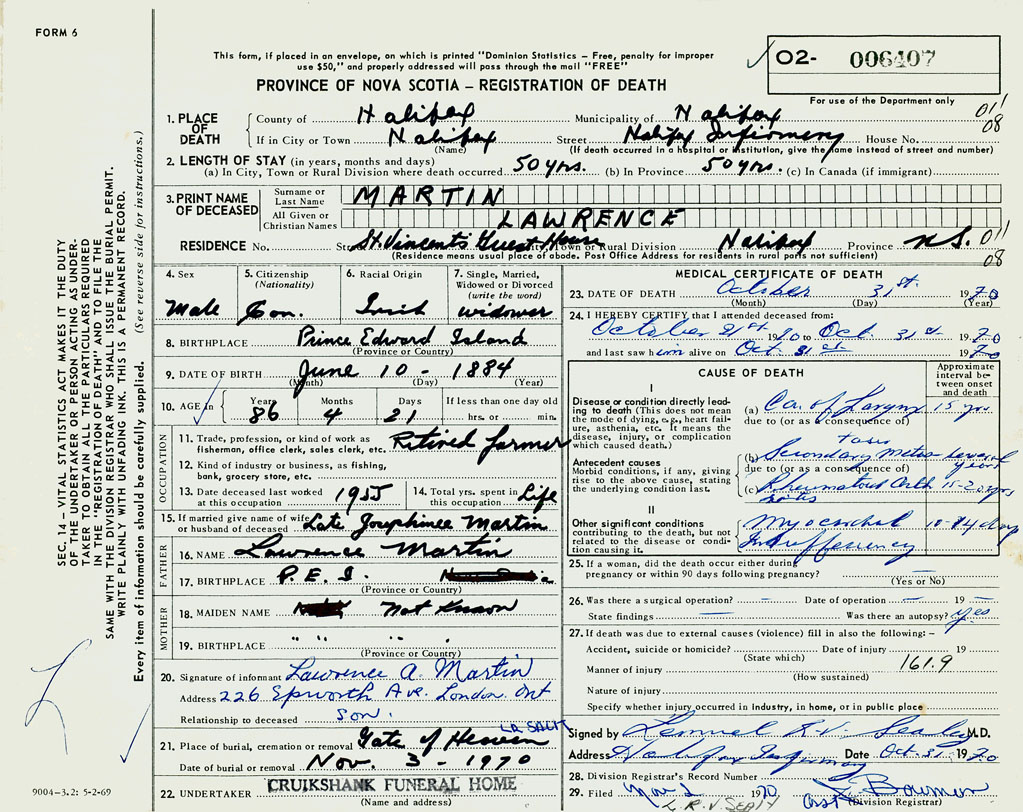 FORM 6
This form, if placed in an envelope, on which is printed "Dominion Statistics – Free, penalty for improper
use $50," and properly addressed will pass through the mail "FREE"
O2- 006407
PROVINCE OF NOVA SCOTIA – REGISTRATION OF DEATH
For use of the Department only
011
08
1. PLACE OF DEATH
County of Halifax Municipality of Halifax
If in City or Town Halifax Street Halifax Infirmary House No.
(Name) (If death occurred in a hospital or institution, give the name instead of street and number)
2. LENGTH OF STAY (in years, months and days)
(a) In City, Town or Rural Division where death occurred 50 yrs. (b) In Province 50 yrs. (c) In Canada (if immigrant)
3. PRINT NAME OF DECEASED
Surname or Last Name MARTIN
All Given or Christian Names LAWRENCE
RESIDENCE No. St. St. Vincent's Guest House City, Town or Rural Division Halifax Province N.S. 011
08
(Residence means usual place of abode. Post Office Address for residents in rural parts not sufficient)
4. Sex
Male
5. Citizenship (Nationality)
Can.
6. Racial Origin
Irish
7. Single, Married, Widowed or Divorced (write the word)
widower
8. BIRTHPLACE Prince Edward Island
(Province or Country)
9. DATE OF BIRTH June 10 - 1884
(Month) (Day) (Year)
10. AGE in Years Months Days If less than one day old
86 4 21 hrs. or min.
OCCUPATION
11. Trade, profession, or kind of work as fisherman, office clerk, sales clerk, etc. Retired farmer
12. Kind of industry or business, as fishing, bank, grocery store, etc.
13. Date deceased last worked at this occupation 1955
14. Total yrs. spent in this occupation Life
15. If married give name of wife or husband of deceased Late Josephinee Martin
FATHER
16. NAME Lawrence Martin
17. BIRTHPLACE P.E.I.
(Province or Country)
MOTHER
18. MAIDEN NAME Not Known
19. BIRTHPLACE " " " "
(Province or Country)
20. Signature of informant Lawrence A. Martin
Address 226 Epworth Ave. London. Ont
Relationship to deceased son.
21. Place of burial, cremation or removal Gate of Heaven
Date of burial or removal Nov. 3 - 1970
22. UNDERTAKER CRUIKSHANK FUNERAL HOME
(Name and address)
MEDICAL CERTIFICATE OF DEATH
23. DATE OF DEATH October 31st 1970
(Month) (Day) (Year)
24. I HEREBY CERTIFY that I attended deceased from:
October 21st 1970 to Oct. 31st 1970
and last saw him alive on Oct. 31st 1970
CAUSE OF DEATH
Approximate interval between onset and death
I
Disease or condition directly leading to death (This does not mean the mode of dying, e.g., heart failure, asthenia, etc. It means the disease, injury, or complication which caused death.)
(a) Ca. of Larynx 15 yrs
due to (or as a consequence of)
Antecedent causes
Morbid conditions, if any, giving rise to the above cause, stating the underlying condition last.
(b) Secondary Metastases several years
due to (or as a consequence of)
(c) Rheumatoid Arthritis 15-20 yrs
II
Other significant conditions contributing to the death, but not related to the disease or condition causing it.
Myocardial Insufficiency 10-14 days
25. If a woman, did the death occur either during pregnancy or within 90 days following pregnancy?
(Yes or No)
26. Was there a surgical operation? – Date of operation – 19 –
State findings – Was there an autopsy? yes
27. If death was due to external causes (violence) fill in also the following: –
Accident, suicide or homicide? Date of injury 19
(State which)
161.9
Manner of injury
(How sustained)
Nature of injury
Specify whether injury occurred in industry, in home, or in public place
Signed by Lemuel R.V. Sealy M.D.
Address Halifax Infirmary Date Oct. 31 1970
28. Division Registrar's Record Number
29. Filed Nov 2 1970 Bowman
L. R. V SEALY
Asst Division Registrar
SEC. 14 – VITAL STATISTICS ACT MAKES IT THE DUTY
OF THE UNDERTAKER OR PERSON ACTING AS UNDER-
TAKER TO OBTAIN ALL THE PARTICULARS REQUIRED
IN THE "REGISTRATION OF DEATH" AND TO FILE THE
SAME WITH THE DIVISION REGISTRAR WHO SHALL ISSUE THE BURIAL PERMIT.
WRITE PLAINLY WITH UNFADING INK. THIS IS A PERMANENT RECORD.
Every item of information should be carefully supplied. (See reverse side for instructions.)
9004–3.2: 5-2-69